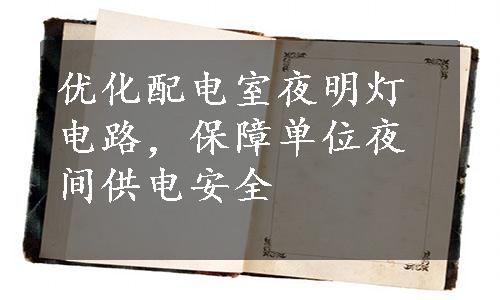 优化配电室夜明灯
电路，保障单位夜
间供电安全